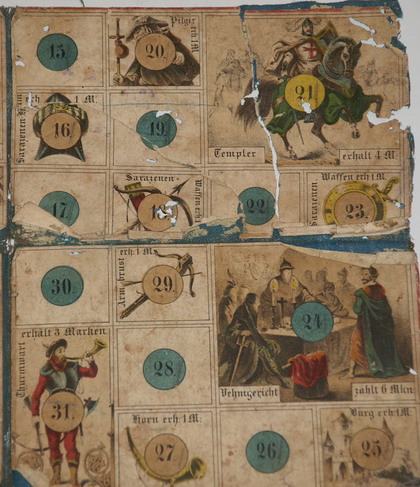 15.
Pilger
erh. 1 M.
20.
21.
Templer
erhält 4 M.
erh. 1 M.
Sarazenen
16.
19.
17.
Sarazenen-
Waffen erh.
22.
Waffen erh 1 M.
Sarazenen
23.
30.
erh. 1 M.
Armbrust
29.
24.
Vehmgericht
zählt 6 Mkn.
erhält 3 Marken
Thurmwart
31.
28.
Horn erh. 1 M.
27.
26.
Burg erh. 1 M.
25.